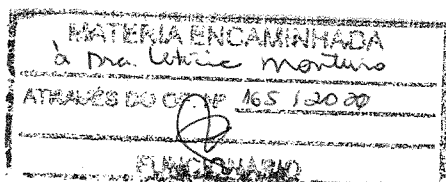 MATERIA ENCAMINHADA
à Dra. Monteiro
ATRAVÉS DO OF. Nº 165 / 2020
FUNCIONARIO